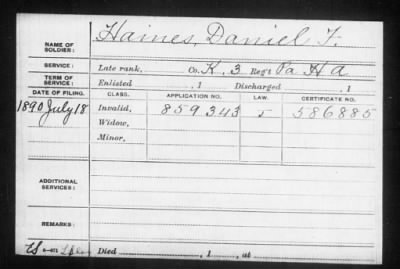 NAME OF SOLDIER: Haines, Daniel F.
SERVICE: Late rank, Co. K, 3 Reg't Pa H A
TERM OF SERVICE: Enlisted , 1 Discharged , 1
DATE OF FILING. CLASS. APPLICATION NO. LAW. CERTIFICATE NO.
1890 July 18 Invalid, 859343 5 586885
Widow,
Minor,
ADDITIONAL SERVICES:
REMARKS:
Died , 1 , at